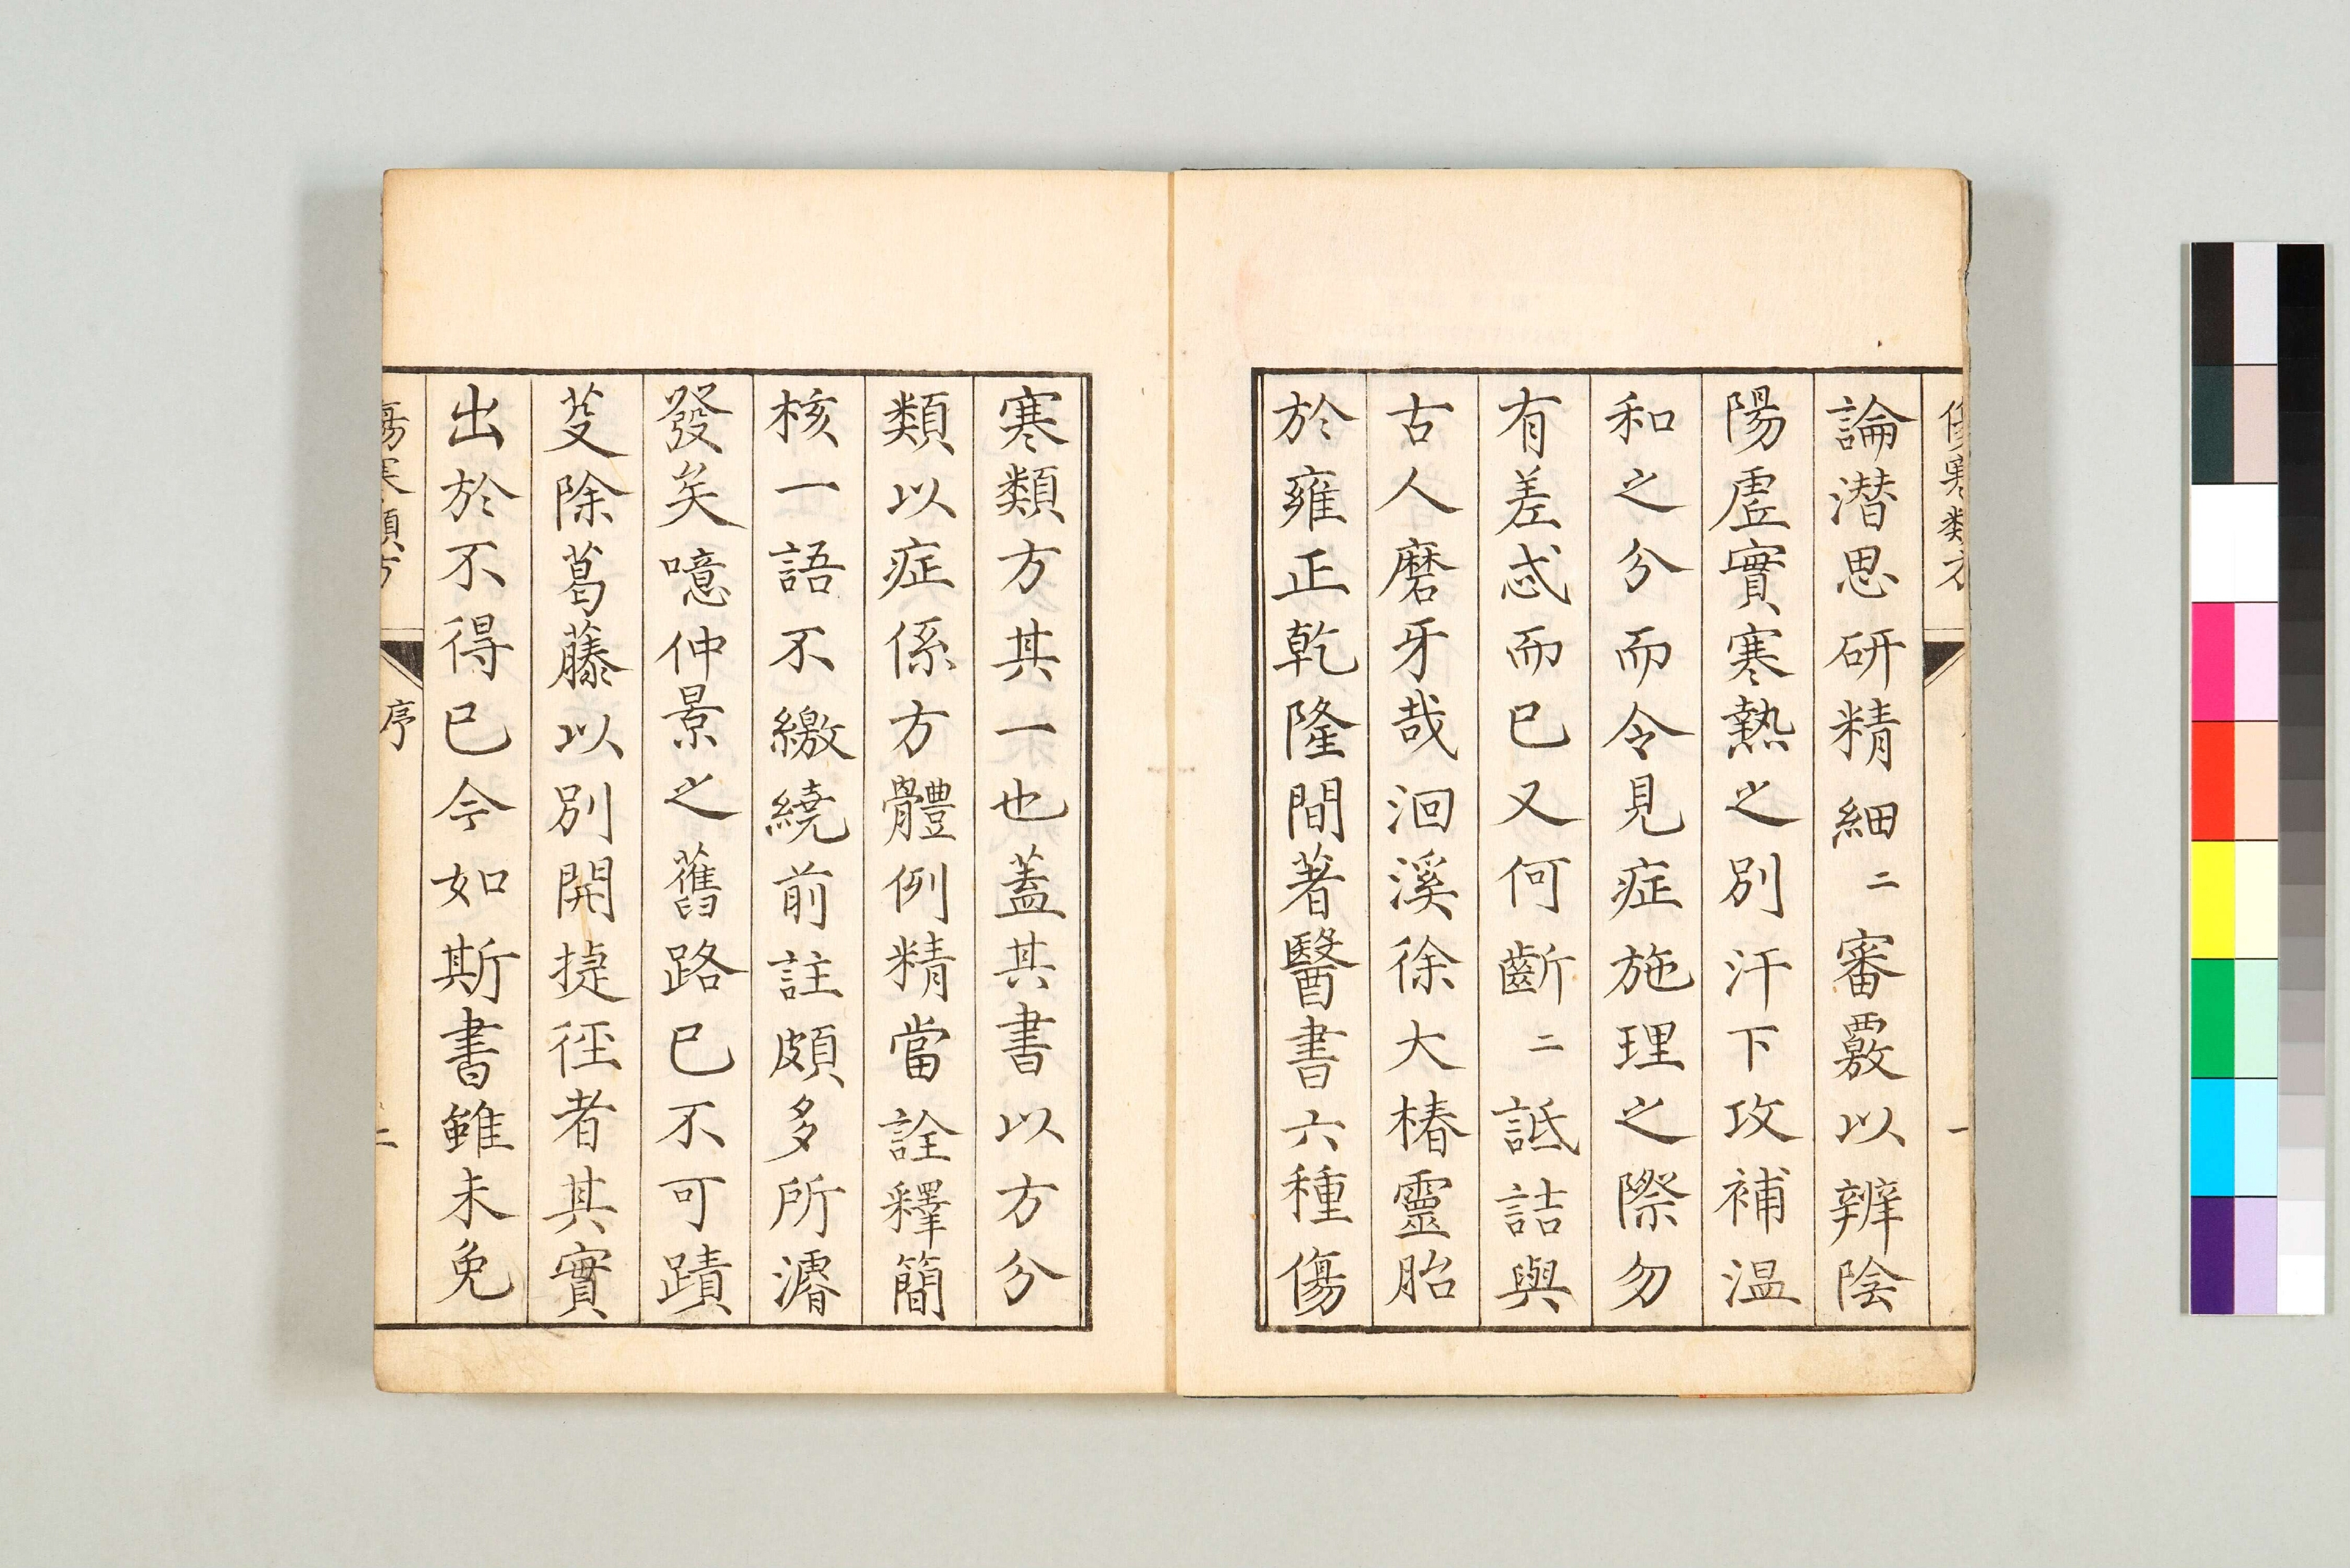 傷寒類方
一
論潜思研精細二審覈以辨陰
陽虛實寒熱之別汗下攻補温
和之分而令見症施理之際勿
有差忒而已又何齗二詆詰與
古人磨牙哉洄溪徐大椿靈胎
於雍正乾隆間著醫書六種傷
寒類方其一也蓋其書以方分
類以症係方體例精當詮釋簡
核一語不繳繞前註頗多所濬
發矣噫仲景之舊路已不可蹟
芟除葛藤以別開捷徑者其實
出於不得已今如斯書雖未免
傷寒類方
序
二